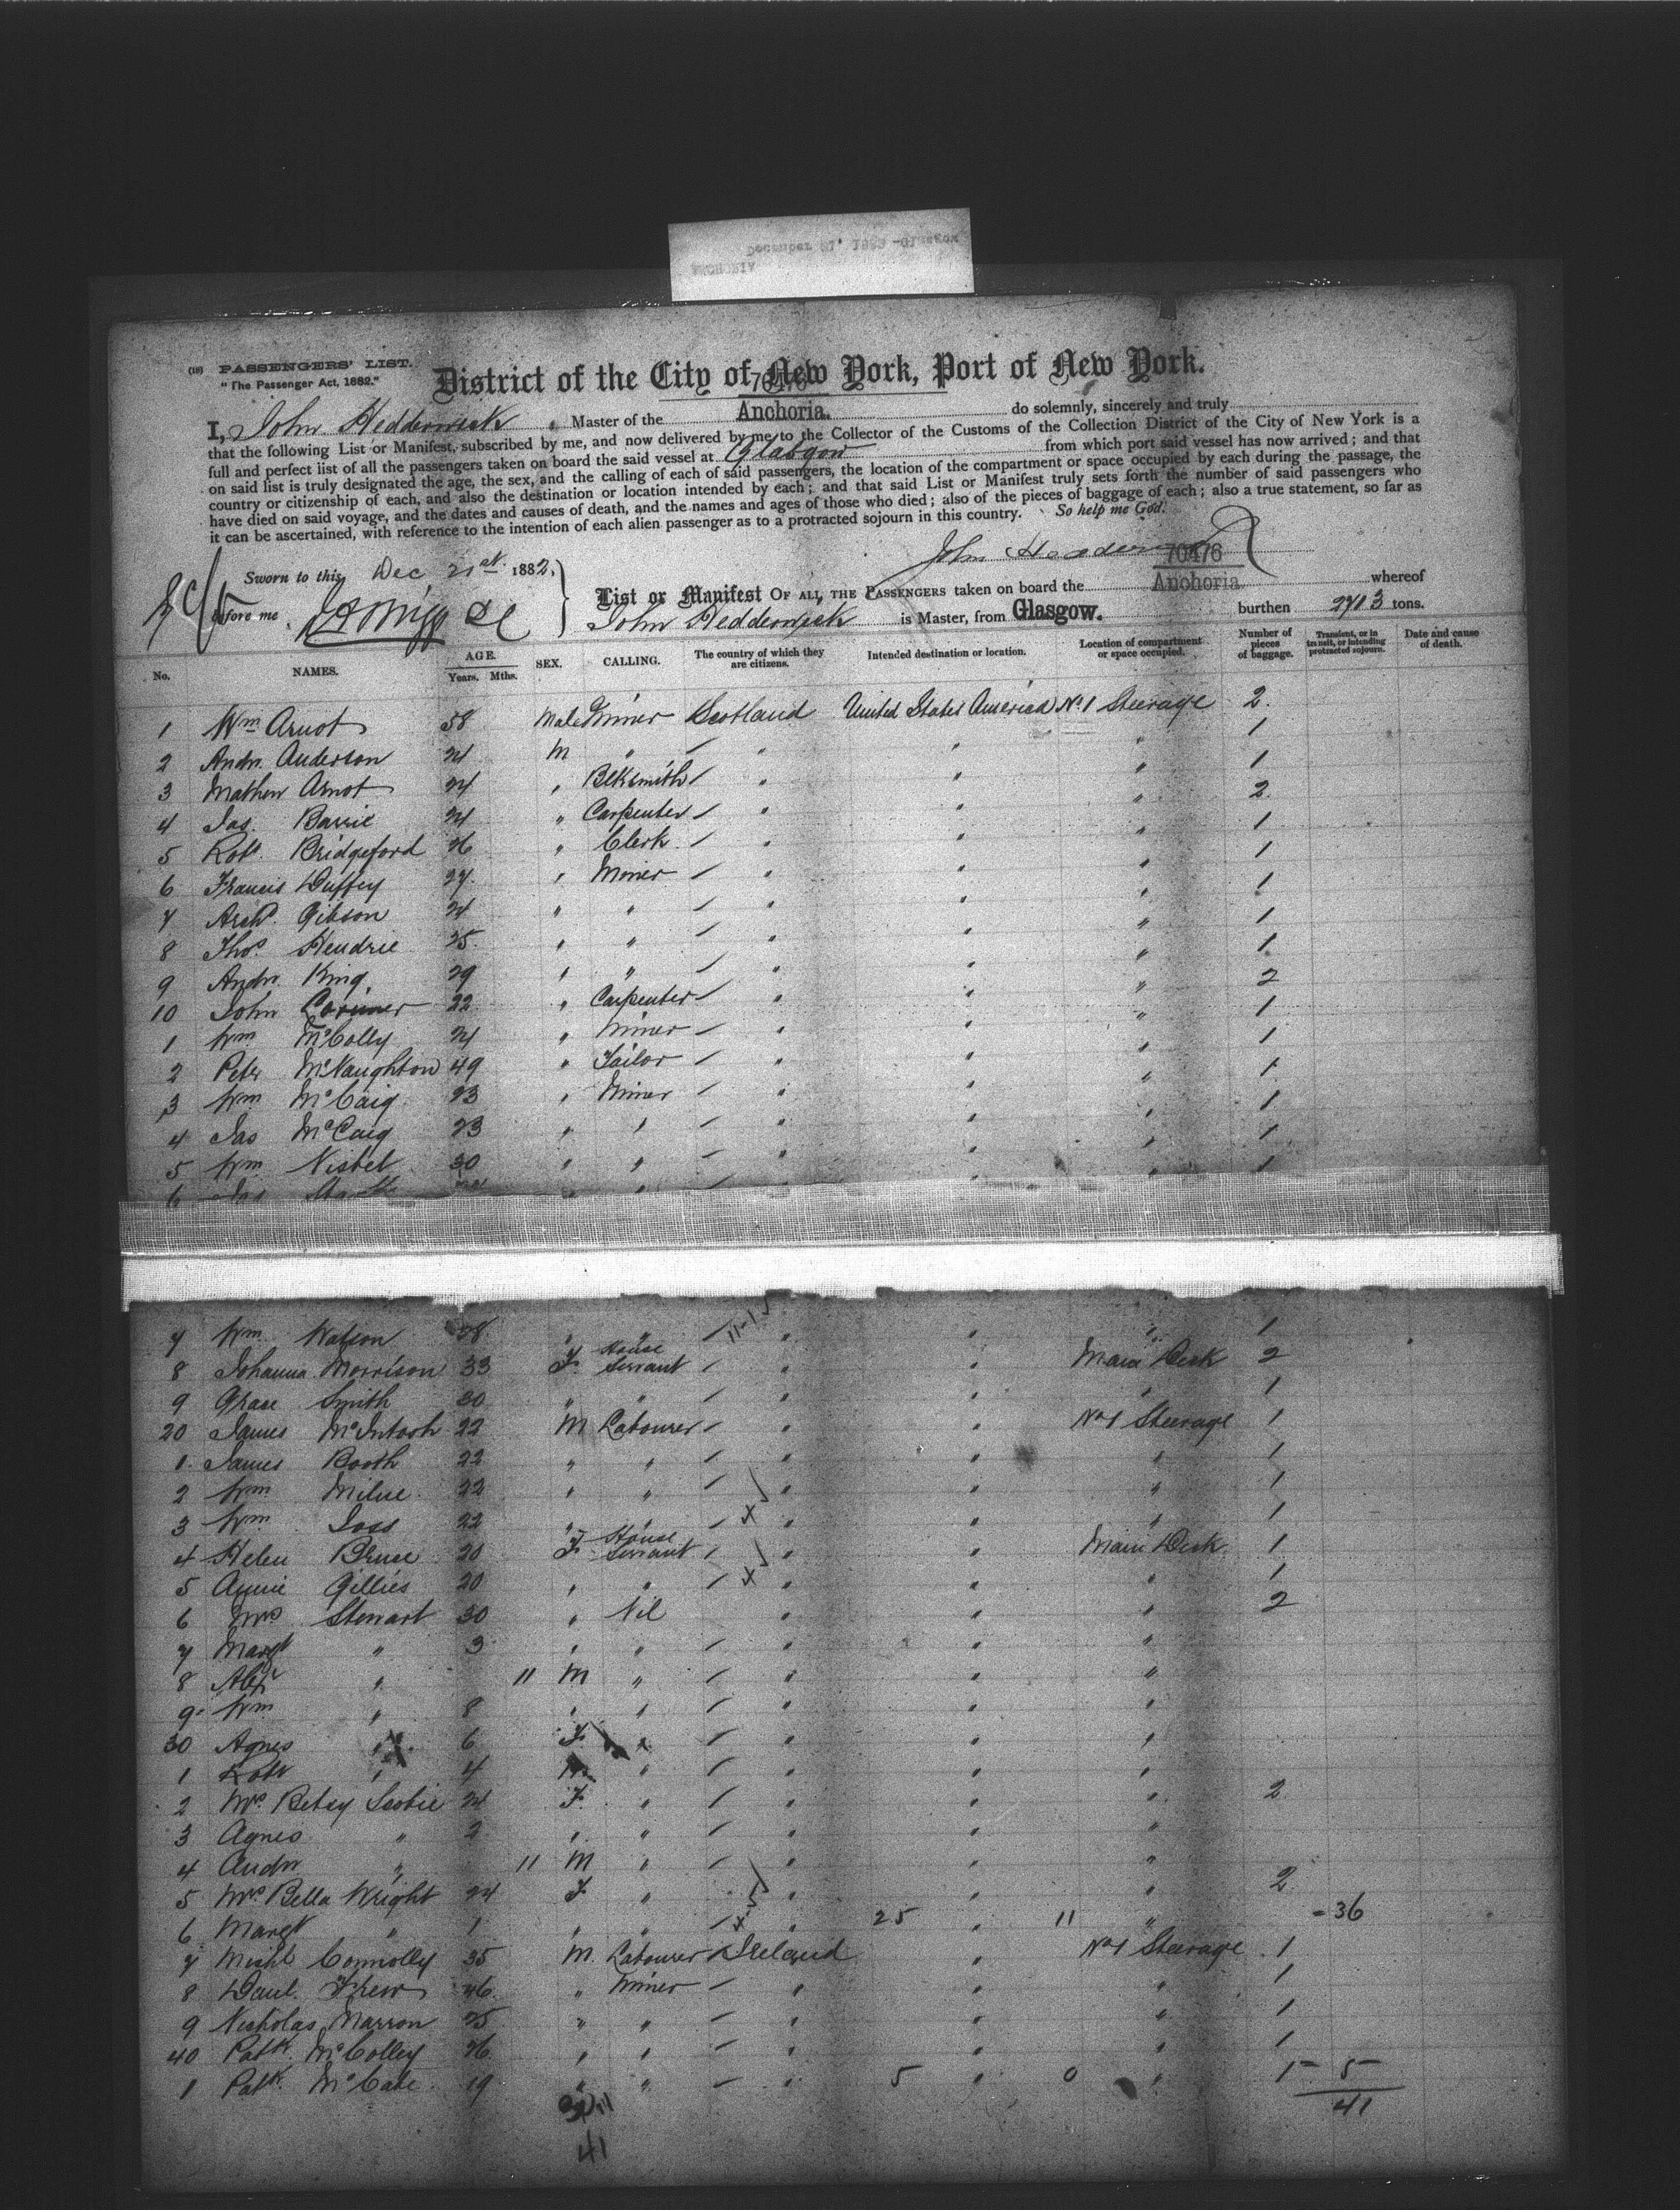 (18) PASSENGERS' LIST.
"The Passenger Act, 1882."
District of the City of New York, Port of New York.
70476
I, John Hedderwick, Master of the Anchoria. do solemnly, sincerely and truly
that the following List or Manifest, subscribed by me, and now delivered by me to the Collector of the Customs of the Collection District of the City of New York is a
full and perfect list of all the passengers taken on board the said vessel at Glasgow from which port said vessel has now arrived; and that
on said list is truly designated the age, the sex, and the calling of each of said passengers, the location of the compartment or space occupied by each during the passage, the
country or citizenship of each, and also the destination or location intended by each; and that said List or Manifest truly sets forth the number of said passengers who
have died on said voyage, and the dates and causes of death, and the names and ages of those who died; also of the pieces of baggage of each; also a true statement, so far as
it can be ascertained, with reference to the intention of each alien passenger as to a protracted sojourn in this country. So help me God.
John Hedderwick
Sworn to this Dec 21st 1882,
before me
70476
List or Manifest OF ALL THE PASSENGERS taken on board the Anchoria whereof
John Hedderwick is Master, from Glasgow. burthen 2713 tons.
No. NAMES. AGE. Years. Mths. SEX. CALLING. The country of which they are citizens. Intended destination or location. Location of compartment or space occupied. Number of pieces of baggage. Transient, or in transit, or intending protracted sojourn. Date and cause of death.
1 Wm Arnot 58 Male Miner Scotland United States America No 1 Steerage 2
2 Andw. Anderson 24 M " " " " 1
3 Mathew Arnot 24 " Blksmith " " " 1
4 Jas. Barrie 24 " Carpenter " " " 2
5 Robt. Bridgeford 26 " Clerk " " " 1
6 Francis Duffey 27 " Miner " " " 1
7 Archd. Gibson 24 " " " " " 1
8 Thos. Hendrie 25 " " " " " 1
9 Andw. King 29 " " " " " 1
10 John 22 " Carpenter " " " 2
1 Wm McColly 24 " Miner " " " 1
2 Peter McNaughton 49 " Tailor " " " 1
3 Wm McCaig 23 " Miner " " " 1
4 Jas McCaig 23 " " " " " 1
5 Wm Nisbet 30 " " " " " 1
6 Jas " " " " " 1
7 Wm. Watson 38 " " " " " 1
8 Johanna Morrison 33 F House Servant " " Main Deck 2
9 Grace Smith 30 " " " " " 1
20 James McIntosh 22 M Labourer " " No 1 Steerage 1
1 James Booth 22 " " " " " 1
2 Wm Milne 22 " " " " " 1
3 Wm Joss 22 " " " " " 1
4 Helen Bruce 20 F House Servant " " Main Deck 1
5 Annie Gillies 20 " " " " " 1
6 Mrs Stewart 30 " Nil " " " 2
7 Margt " 3 " " " " "
8 Alexr " 11 M " " " "
9 Wm " 8 " " " " "
30 Agnes " 6 F " " " "
1 Robt " 4 M " " " "
2 Mrs. Betsy Scobie 24 F " " " " 2
3 Agnes " 2 " " " " "
4 Andw " 11 M " " " "
5 Mrs Bella Wright 24 F " " " " 2
6 Margt " 1 " " " 25 " 11 " - 36
7 Michl Connolly 35 M Labourer Ireland " No 1 Steerage 1
8 Danl. Frew 46 " Miner " " " 1
9 Nicholas Marron 25 " " " " " 1
40 Patk. McColley 26 " " " " " 1
1 Patk. McCabe 19 " " " 5 " 0 " 1 - 5
41
41